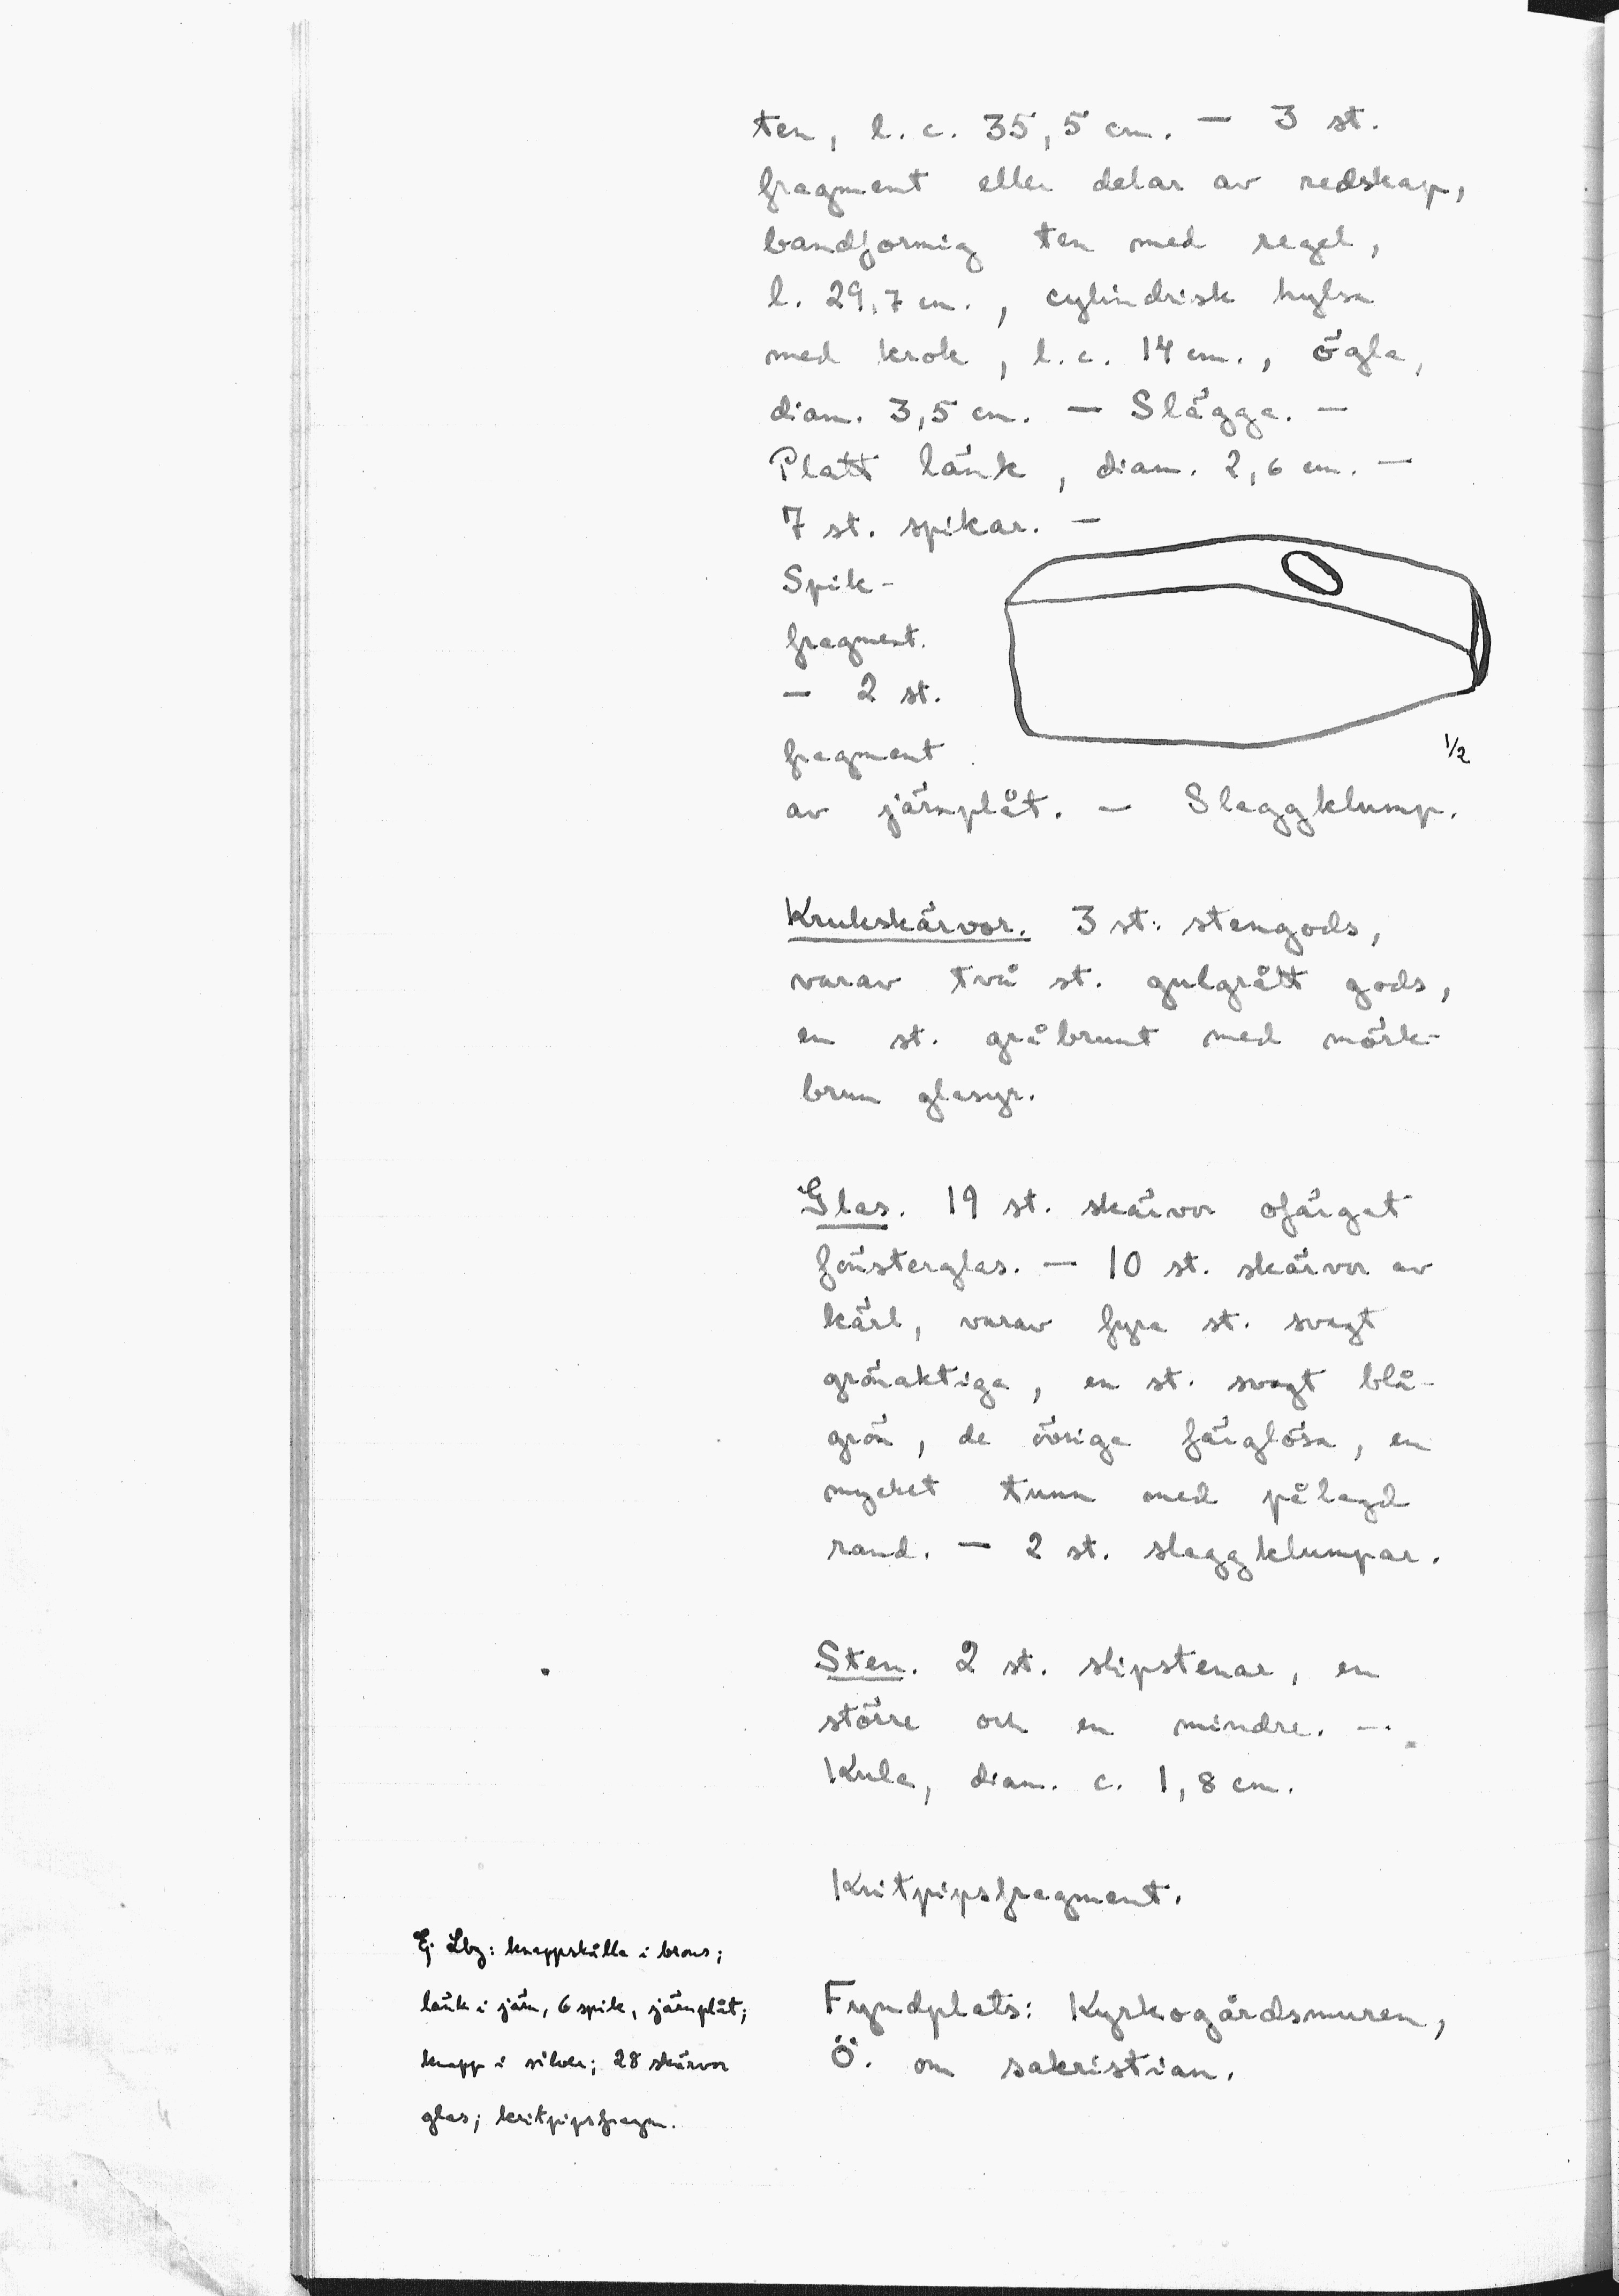 ten, l. c. 35,5 cm. — 3 st.
fragment eller delar av redskap,
bandformig ten med regel,
l. 29,7 cm., cylindrisk hylsa
med krok, l. c. 14 cm., ögla,
diam. 3,5 cm. — Slägga. —
Platt länk, diam. 2,6 cm. —
7 st. spikar. —
Spik-
fragment.
— 2 st.
fragment
1/2
av järnplåt. — Slaggklump.
Krukskärvor. 3 st. stengods,
varav två st. gulgrått gods,
en st. gråbrunt med mörk-
brun glasyr.
Glas. 19 st. skärvor ofärgat
fönsterglas. — 10 st. skärvor av
kärl, varav fyra st. svagt
grönaktiga, en st. svagt blå-
grön, de övriga färglösa, en
mycket tunn med pålagd
rand. — 2 st. slaggklumpar.
Sten. 2 st. slipstenar, en
större och en mindre. —
Kula, diam. c. 1,8 cm.
Kritpipsfragment.
Fyndplats: Kyrkogårdsmuren,
Ö. om sakristian.
Ej Lbg: knappskålla i brons;
länk i järn, 6 spik, järnplåt;
knapp i silver; 28 skärvor
glas; kritpipsfragm.